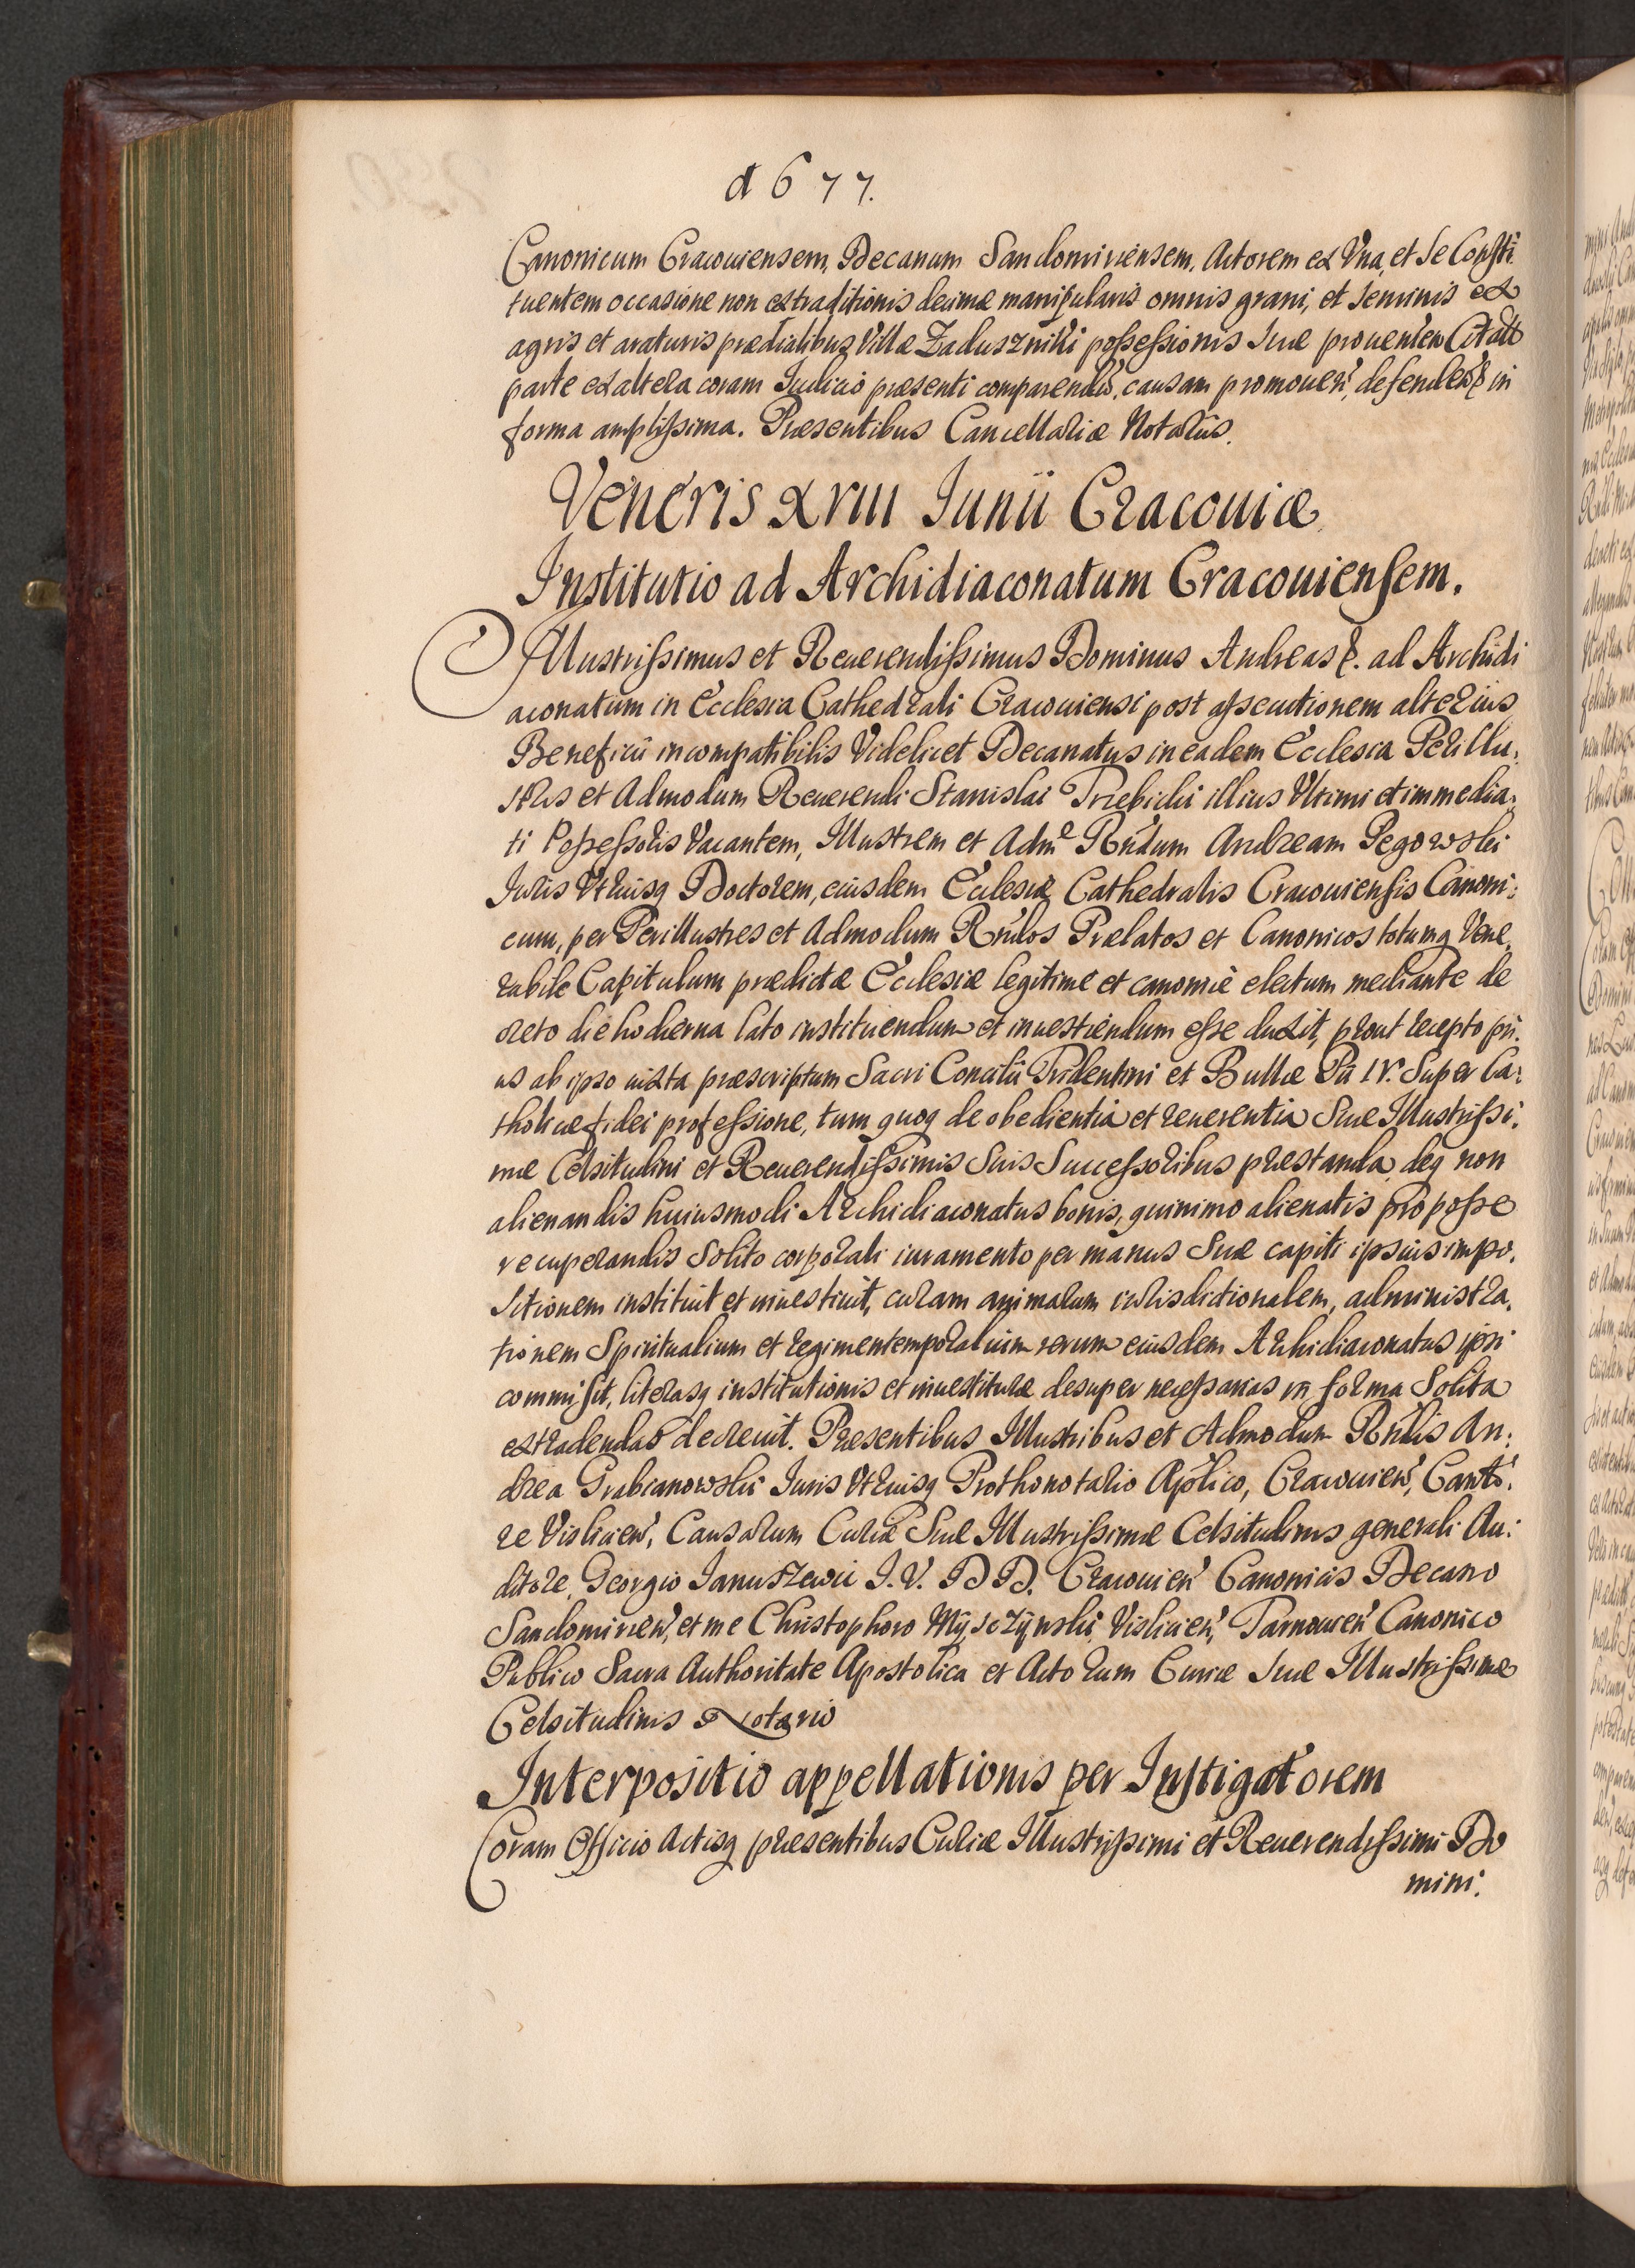 1677.
Canonicum Cracouiensem, Decanum Sandomiriensem, Actorem ex Vna, et se Consti
tuentem occasione non extraditionis decimæ manipularis omnis grani, et seminis ex
agris et araturis prædialibus Villæ Zaduszniki possessionis suæ prouenien Citatt
parte ex altera coram Iudicio præsenti comparendi, causam promouen, defenden &c in
forma amplissima. Præsentibus Cancellariæ Notariis.
Veneris XVIII Iunii Cracouiæ
Institutio ad Archidiaconatum Cracouiensem.
Illustrissimus et Reuerendissimus Dominus Andreas &c. ad Archidi
aconatum in Ecclesia Cathedrali Cracouiensi post assecutionem alterius
Beneficii incompatibilis Videlicet Decanatus in eadem Ecclesia Perillu,
stris et Admodum Reuerendi Stanislai Trzebicki illius Vltimi et immedia,
ti Possessoris Vacantem, Illustrem et Admᵒ Rńdum Andream Pegowski
Iuris Vtriusq Doctorem, eiusdem Ecclesiæ Cathedralis Cracouiensis Canoni:
cum, per Perillustres et Admodum Rńdos Prælatos et Canonicos totumq Vene,
rabile Capitulum prædictæ Ecclesiæ legitime et canonicè electum mediante de
creto die hodierna lato instituendum et inuestiendum esse duxit, prout recepto pri:
us ab ipso iuxta præscriptum Sacri Concilii Tridentini et Bullæ Pii IV. Super Ca:
tholicæ fidei professione, tum quoq de obedientia et reuerentia Suæ Illustrissi:
mæ Celsitudini et Reuerendissimis Suis Successoribus præstanda, deq non
alienandis huiusmodi Archidiaconatus bonis, quinimo alienatis pro posse
recuperandis solito corporali iuramento per manus Suæ capiti ipsius impo,
sitionem instituit et inuestiuit, curam animarum iurisdictionalem, administra,
tionem Spiritualium et regimen temporalium rerum eiusdem Archidiaconatus ipsi
commisit, literasq institutionis et inuestituræ desuper necessarias in forma Solita
extradendas decreuit. Præsentibus Illustribus et Admodum Rńdis An:
drea Grabianowski Iuris Vtriusq Prothonotario Aplico, Cracouien, Canto:
re Vislicien, Causarum Curiæ Suæ Illustrissimæ Celsitudinis generali Au:
ditore, Georgio Januszewic I. V. D D. Cracouien Canonicis Decano
Sandomirien, et me Christophoro Myszczynski Vislicien, Tarnouien Canonico
Publico Sacra Authoritate Apostolica et Actorum Curiæ Suæ Illustrissimæ
Celsitudinis Notario
Interpositio appellationis per Instigatorem
Coram Officio Actisq præsentibus Curiæ Illustrissimi et Reuerendissimi Do
mini.